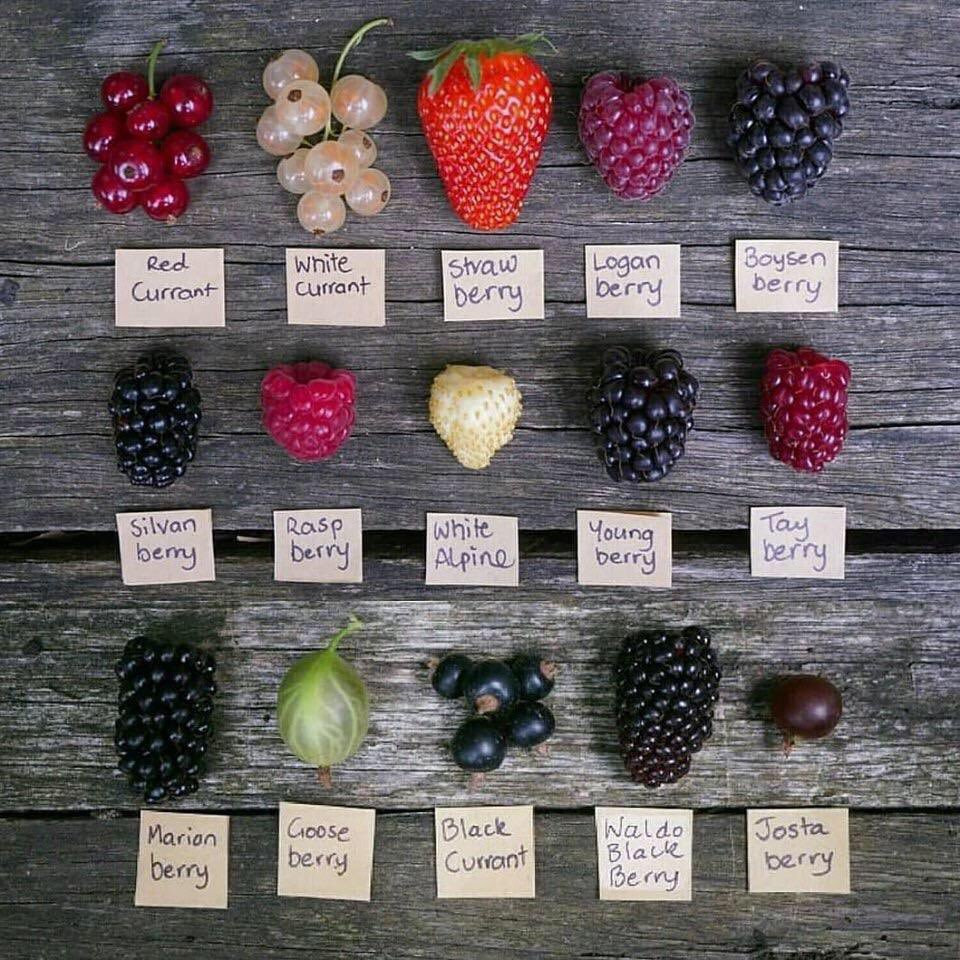 Red
Currant
White
Currant
Straw
berry
Logan
berry
Boysen
berry
Silvan
berry
Rasp
berry
White
Alpine
Young
berry
Tay
berry
Marion
berry
Goose
berry
Black
Currant
Waldo
Black
Berry
Josta
berry